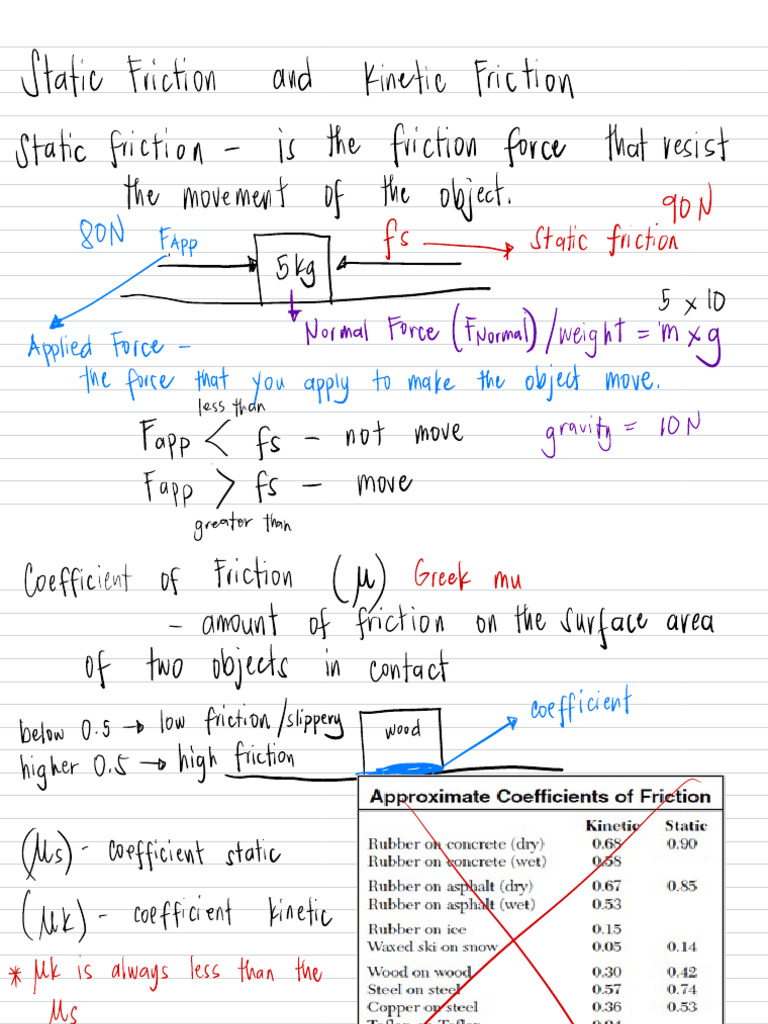 Static Friction and Kinetic Friction
Static friction - is the friction force that resist
the movement of the object.
90N
80N FApp fs → Static friction
5kg
5 x 10
Normal Force (FNormal) / weight = m x g
Applied Force -
the force that you apply to make the object move.
less than
Fapp < fs - not move
gravity = 10N
Fapp > fs - move
greater than
Coefficient of Friction (μ) Greek mu
- amount of friction on the surface area
of two objects in contact
coefficient
below 0.5 → low friction/slippery
wood
higher 0.5 → high friction
Approximate Coefficients of Friction
Kinetic Static
Rubber on concrete (dry) 0.68 0.90
Rubber on concrete (wet) 0.58
Rubber on asphalt (dry) 0.67 0.85
Rubber on asphalt (wet) 0.53
Rubber on ice 0.15
Waxed ski on snow 0.05 0.14
Wood on wood 0.30 0.42
Steel on steel 0.57 0.74
Copper on steel 0.36 0.53
(μs) - coefficient static
(μk) - coefficient kinetic
* μk is always less than the
μs